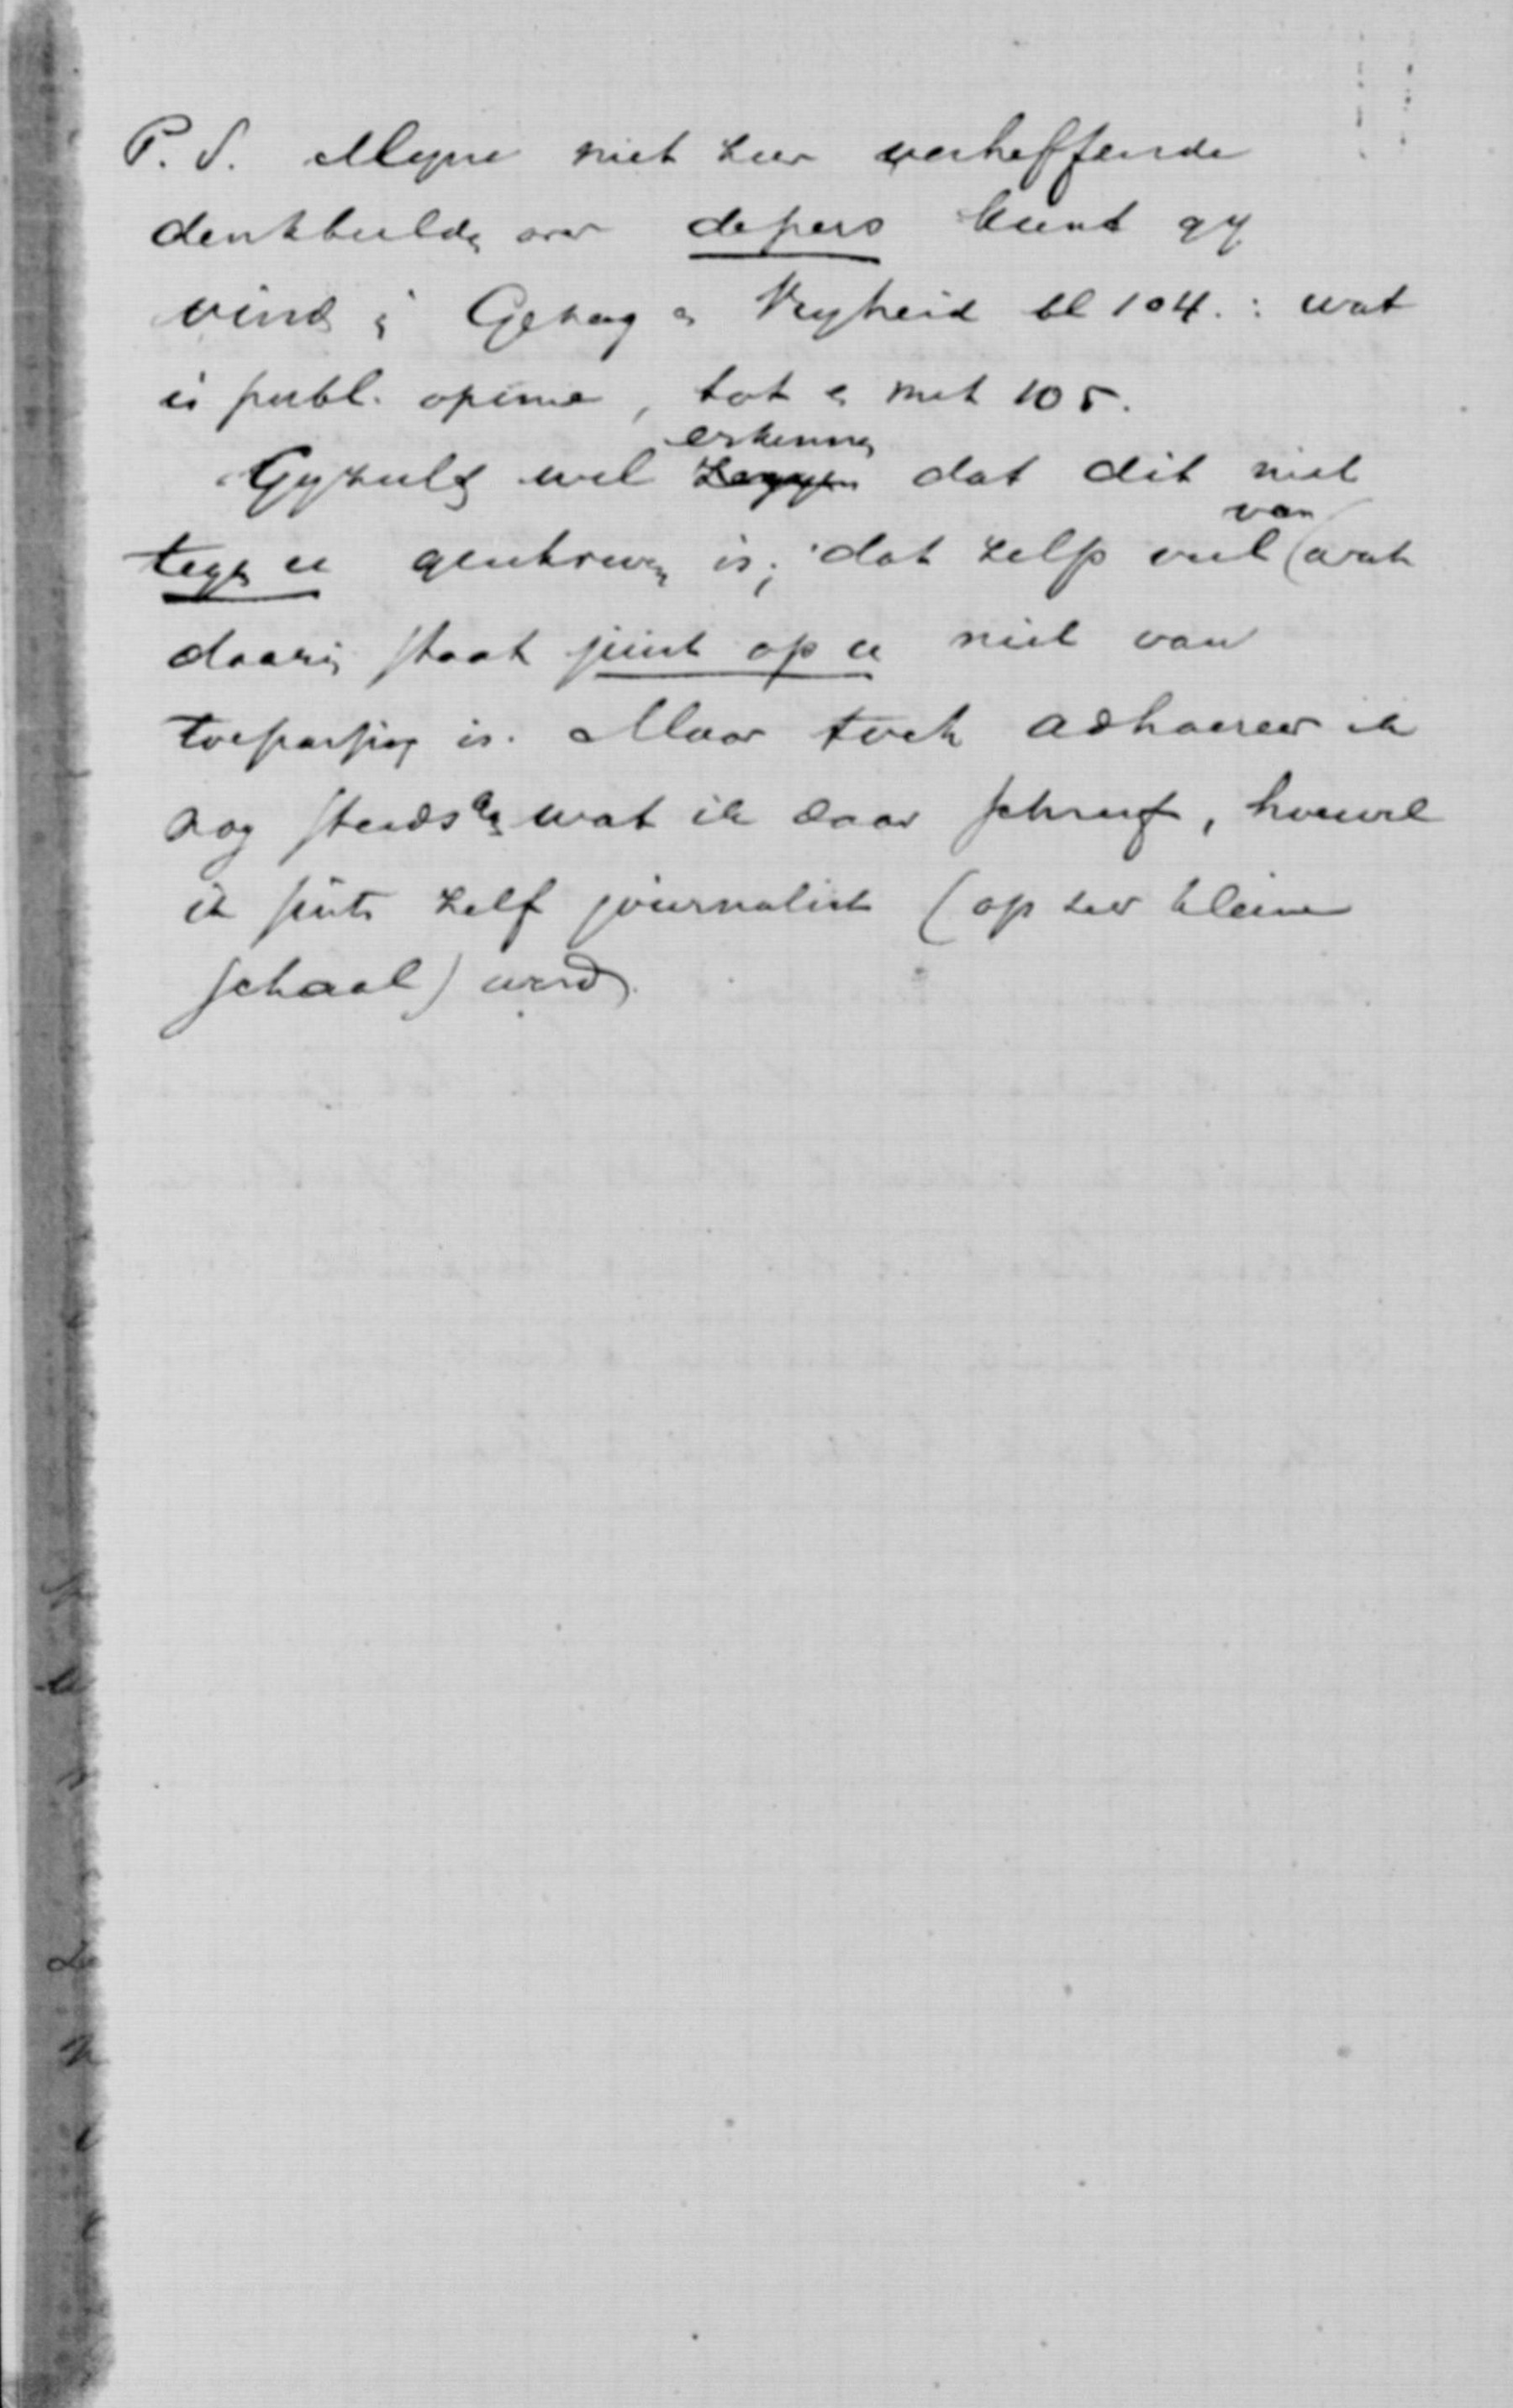 P.S. Myne niet zeer verheffende
denkbeelden over de pers kunt gy
vinden in Gezag en Vryheid bl 104. : wat
is publ. opinie, tot en met 105.
Gy zult wel zeggen erkennen dat dit niet
tegen u geschreven is; dat zelfs veel van (wat
daarin staat juist op u niet van
toepassing is. Maar toch adhaereer ik
nog steeds aan wat ik daar schreef, hoewel
ik sints zelf journalist (op zeer kleine
schaal) werd.